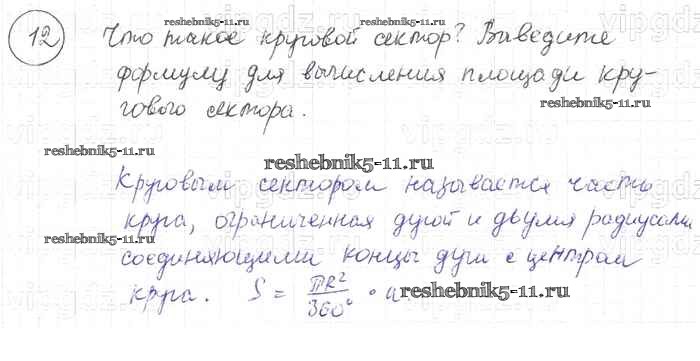 12 Что такое круговой сектор? Выведите
формулу для вычисления площади кру-
гового сектора.
Круговым сектором называется часть
круга, ограниченная дугой и двумя радиусами
соединяющими концы дуги с центром
круга. S = πR²/360° · α
reshebnik5-11.ru
reshebnik5-11.ru
reshebnik5-11.ru
reshebnik5-11.ru
reshebnik5-11.ru
reshebnik5-11.ru